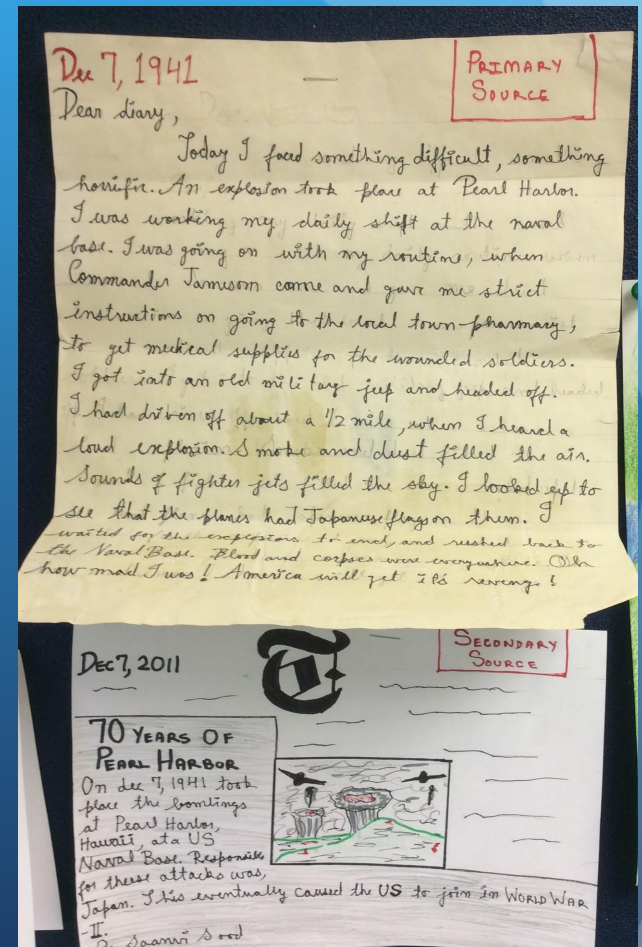 Dec 7, 1941
PRIMARY
SOURCE
Dear diary,
Today I faced something difficult, something
horrific. An explosion took place at Pearl Harbor.
I was working my daily shift at the naval
base. I was going on with my routine, when
Commander Jameson came and gave me strict
instructions on going to the local town-pharmacy,
to get medical supplies for the wounded soldiers.
I got into an old military jeep and headed off.
I had driven off about a 1/2 mile, when I heard a
loud explosion. Smoke and dust filled the air.
Sounds of fighter jets filled the sky. I looked up to
see that the planes had Japanese flags on them. I
waited for the explosions to end, and rushed back to
the Naval Base. Blood and corpses were everywhere. Oh
how mad I was! America will get it's revenge!
DEC 7, 2011
T
SECONDARY
SOURCE
70 YEARS OF
PEARL HARBOR
On dec 7, 1941 took
place the bombings
at Pearl Harbor,
Hawaii, at a US
Naval Base. Responsible
for these attacks was,
Japan. This eventually caused the US to join in WORLD WAR
-II.
Saanvi Sood